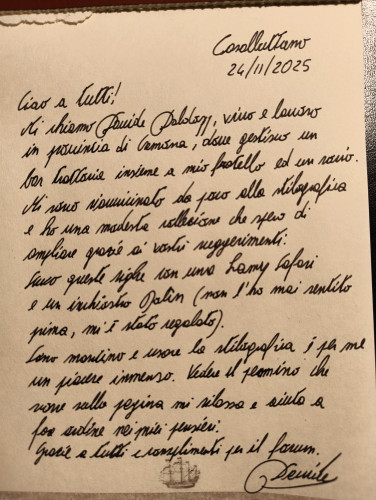 Casalbuttano
24/11/2025
Ciao a tutti!
Mi chiamo Davide, vivo e lavoro
in provincia di Cremona, dove gestisco un
bar trattoria insieme a mio fratello ed un socio.
Mi sono riavvicinato da poco alla stilografica
e ho una modesta collezione che spero di
ampliare grazie ai vostri suggerimenti.
Scrivo queste righe con una Lamy Safari
e un inchiostro (non l'ho mai sentito
prima, mi è stato regalato).
Sono mancino e usare la stilografica è per me
un piacere immenso. Vedere il pennino che
scorre sulla pagina mi rilassa e aiuta a
fare ordine nei miei pensieri.
Grazie a tutti e complimenti per il forum.
Davide